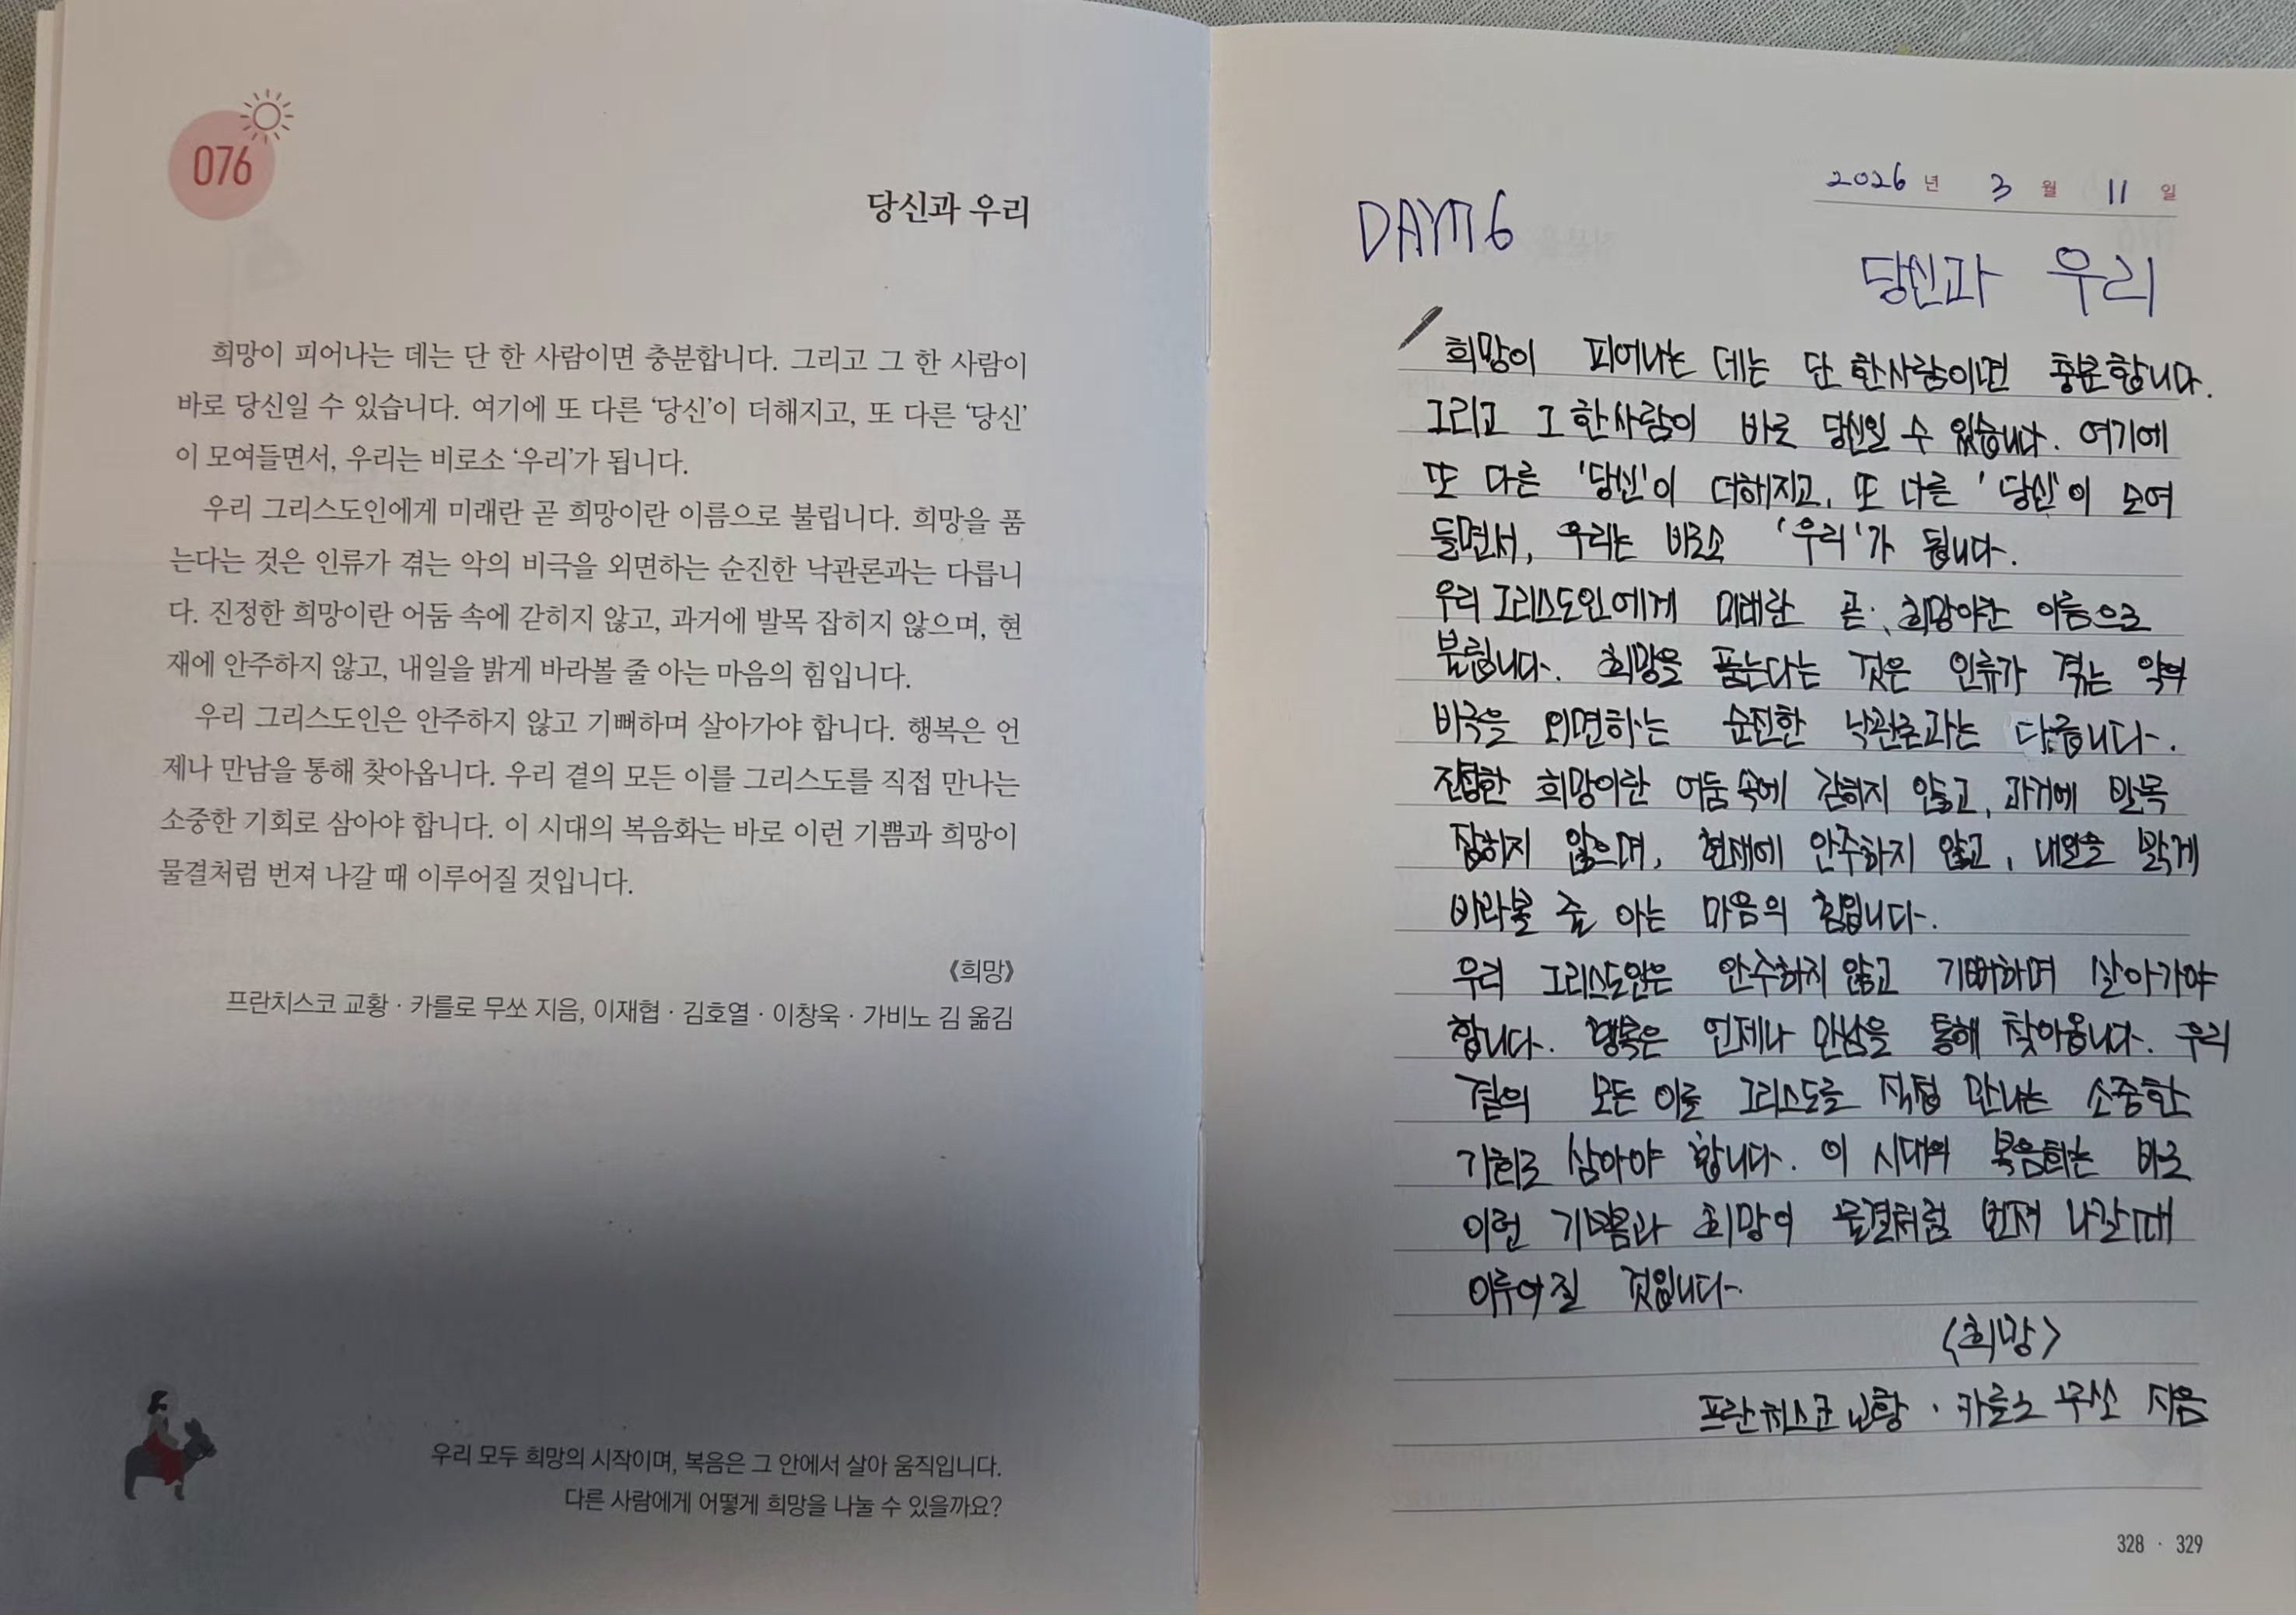 076
당신과 우리
희망이 피어나는 데는 단 한 사람이면 충분합니다. 그리고 그 한 사람이
바로 당신일 수 있습니다. 여기에 또 다른 ‘당신’이 더해지고, 또 다른 ‘당신’
이 모여들면서, 우리는 비로소 ‘우리’가 됩니다.
우리 그리스도인에게 미래란 곧 희망이란 이름으로 불립니다. 희망을 품
는다는 것은 인류가 겪는 악의 비극을 외면하는 순진한 낙관론과는 다릅니
다. 진정한 희망이란 어둠 속에 갇히지 않고, 과거에 발목 잡히지 않으며, 현
재에 안주하지 않고, 내일을 밝게 바라볼 줄 아는 마음의 힘입니다.
우리 그리스도인은 안주하지 않고 기뻐하며 살아가야 합니다. 행복은 언
제나 만남을 통해 찾아옵니다. 우리 곁의 모든 이를 그리스도를 직접 만나는
소중한 기회로 삼아야 합니다. 이 시대의 복음화는 바로 이런 기쁨과 희망이
물결처럼 번져 나갈 때 이루어질 것입니다.
《희망》
프란치스코 교황 · 카를로 무쏘 지음, 이재협 · 김호열 · 이창욱 · 가비노 김 옮김
우리 모두 희망의 시작이며, 복음은 그 안에서 살아 움직입니다.
다른 사람에게 어떻게 희망을 나눌 수 있을까요?
2026 년 3 월 11 일
DAY76
당신과 우리
희망이 피어나는 데는 단 한사람이면 충분합니다.
그리고 그 한사람이 바로 당신일 수 있습니다. 여기에
또 다른 '당신'이 더해지고, 또 다른 '당신'이 모여
들면서, 우리는 비로소 '우리'가 됩니다.
우리 그리스도인에게 미래란 곧, 희망이란 이름으로
불립니다. 희망을 품는다는 것은 인류가 겪는 악의
비극을 외면하는 순진한 낙관론과는 다릅니다.
진정한 희망이란 어둠 속에 갇히지 않고, 과거에 발목
잡히지 않으며, 현재에 안주하지 않고, 내일을 밝게
바라볼 줄 아는 마음의 힘입니다.
우리 그리스도인은 안주하지 않고 기뻐하며 살아가야
합니다. 행복은 언제나 만남을 통해 찾아옵니다. 우리
곁의 모든 이를 그리스도를 직접 만나는 소중한
기회로 삼아야 합니다. 이 시대의 복음화는 바로
이런 기쁨과 희망이 물결처럼 번져 나갈 때
이루어질 것입니다.
<희망>
프란치스코 교황 · 카를로 무쏘 지음
328 · 329